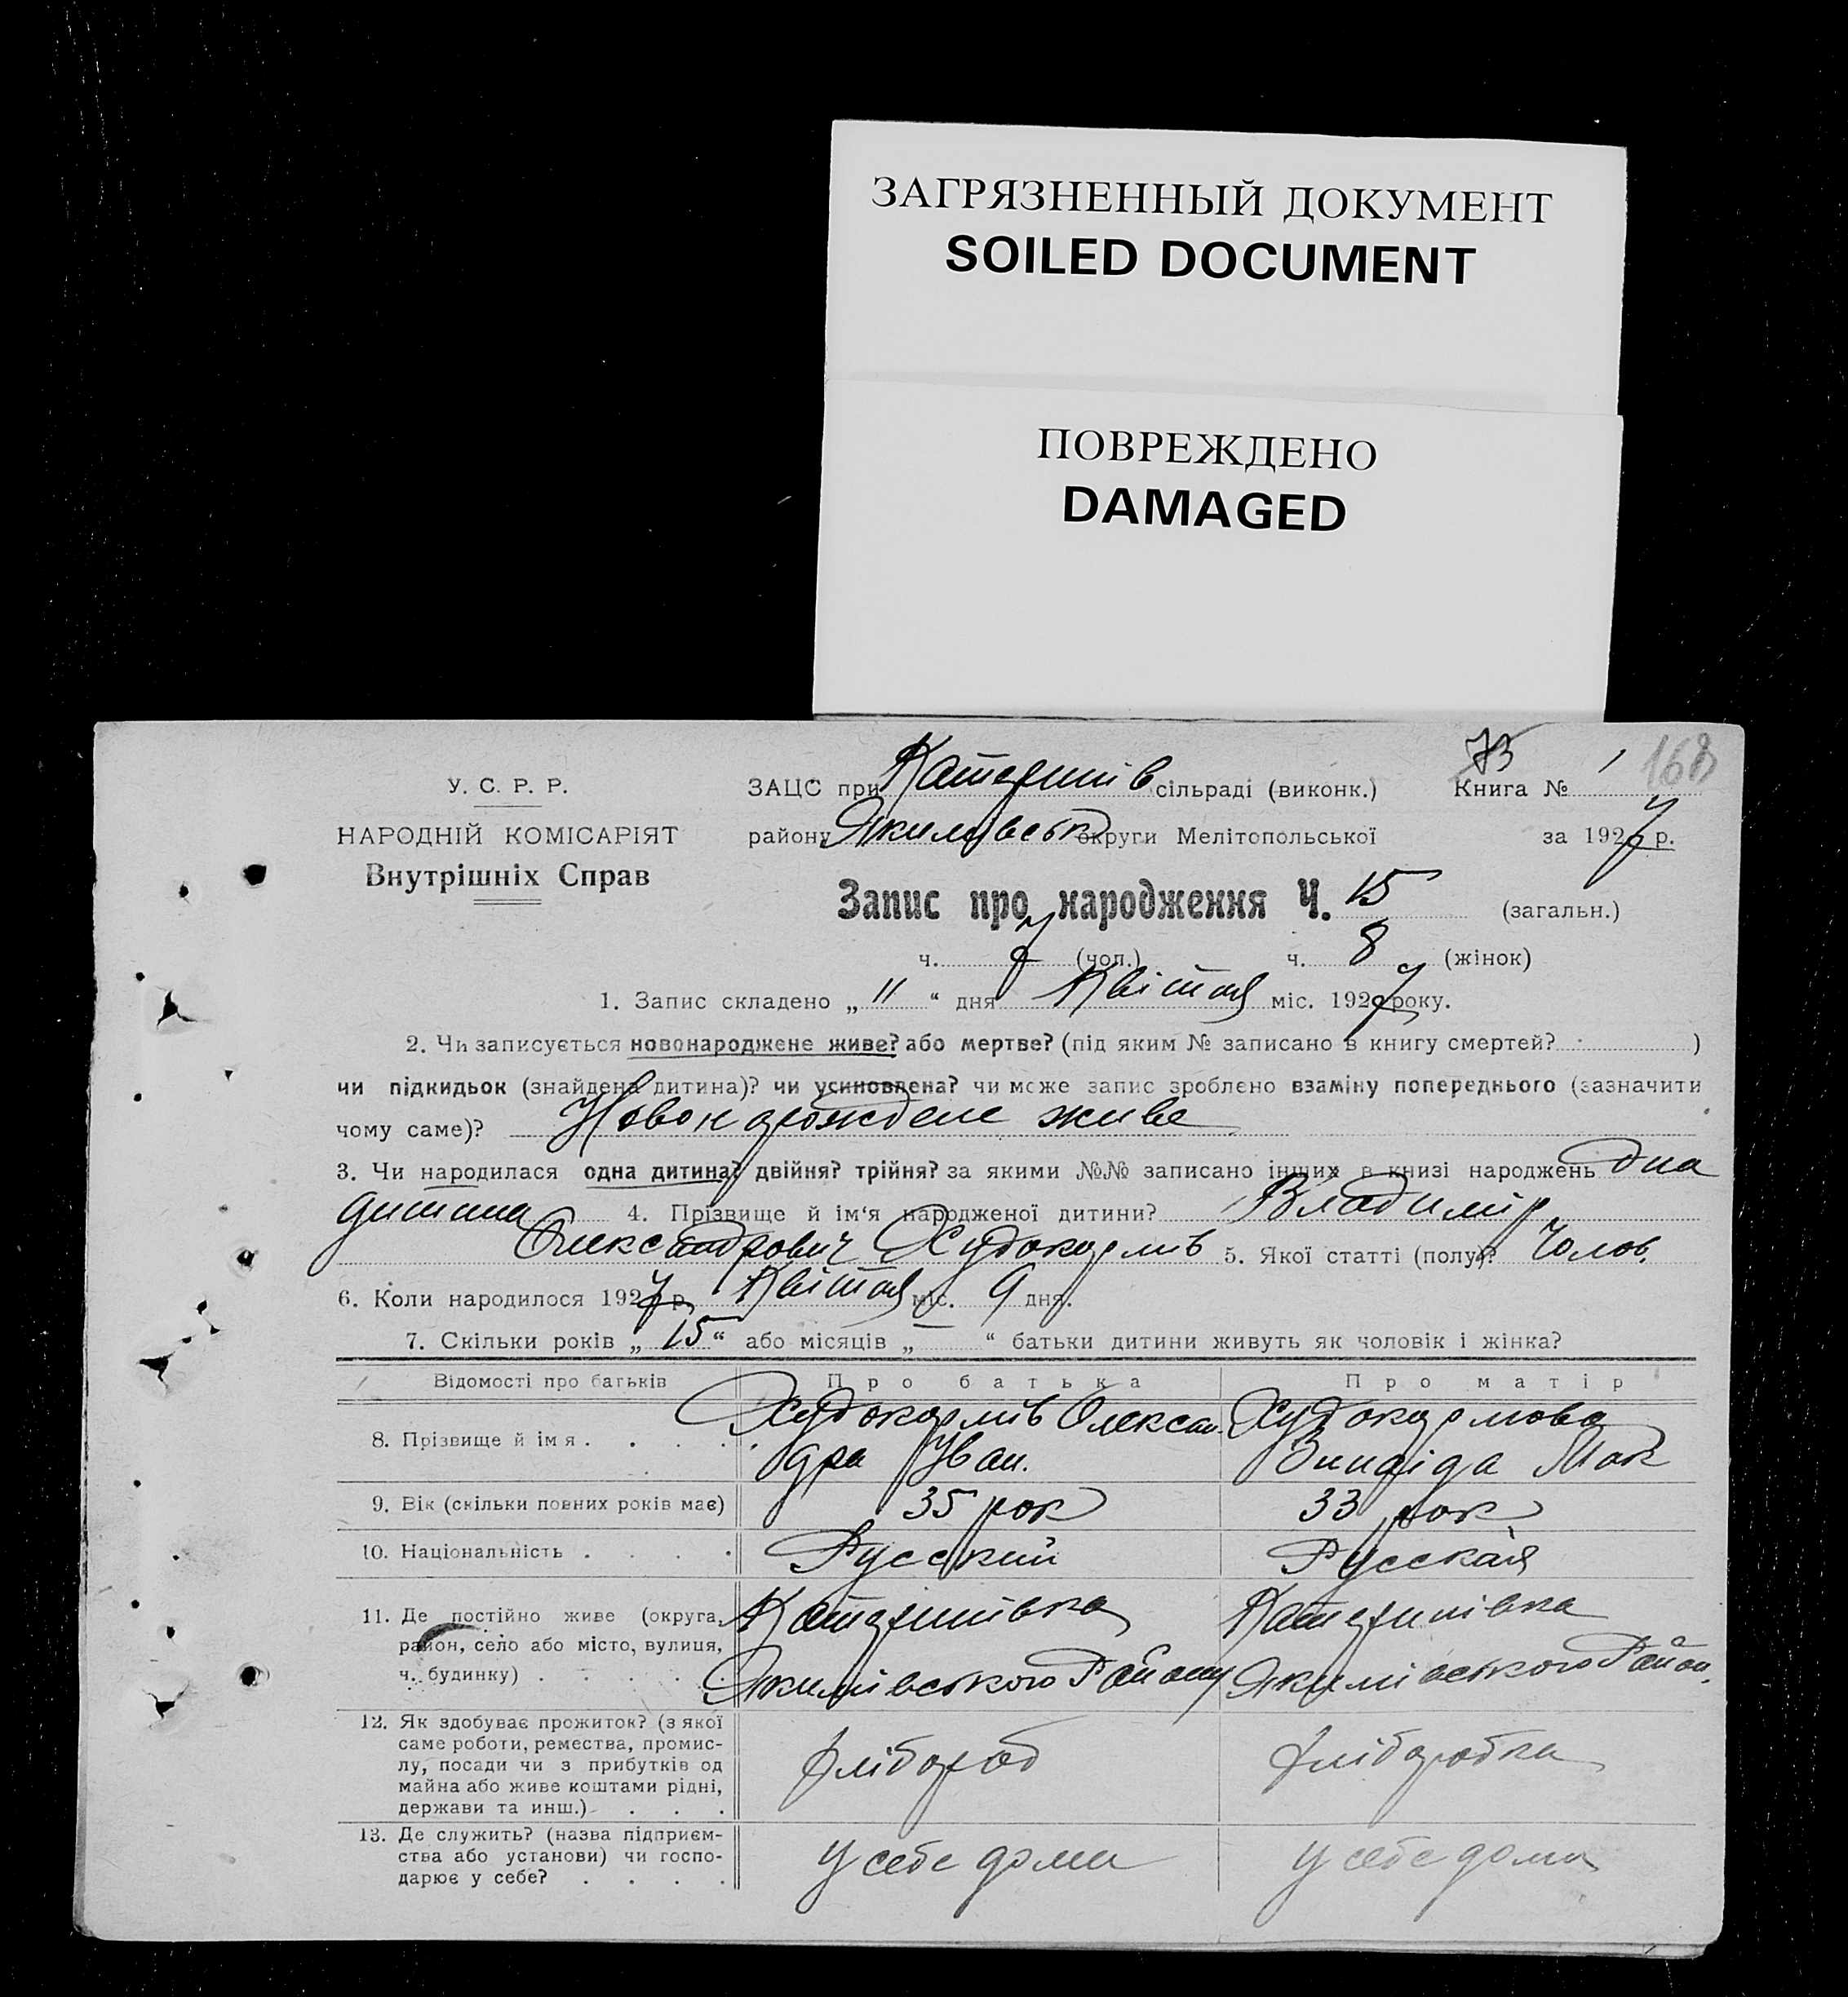 ЗАГРЯЗНЕННЫЙ ДОКУМЕНТ
SOILED DOCUMENT
ПОВРЕЖДЕНО
DAMAGED
73 168
У. С. Р. Р. ЗАЦС при Катеринів сільраді (виконк.) Книга № 1
НАРОДНІЙ КОМІСАРІЯТ району Якимівськ округи Мелітопольської за 1927 р.
Внутрішніх Справ
Запис про народження Ч. 15 (загальн.)
ч. 7 (чол.) ч. 8 (жінок)
1. Запис складено „ 11 “ дня Квітня міс. 1927 року.
2. Чи записується новонароджене живе? або мертве? (під яким № записано в книгу смертей? )
чи підкидьок (знайдена дитина)? чи усиновлена? чи може запис зроблено взаміну попереднього (зазначити
чому саме)? Новонарождене живе
3. Чи народилася одна дитина? двійня? трійня? за якими №№ записано інших в книзі народжень Одна
дитина 4. Прізвище й ім‘я народженої дитини? Владимір
Олександрович Худокормів 5. Якої статті (полу)? Чолов.
6. Коли народилося 1927 р. Квітня міс. 9 дня.
7. Скільки років „ 15 “ або місяців „ — “ батьки дитини живуть як чоловік і жінка?
Відомості про батьків Про батька Про матір
8. Прізвище й ім я . . . . . Худокормів Олексан Худокормова
дра Іван. Зинаіда Мак
9. Вік (скільки повних років має) 35 рок 33 рок
10. Національність . . . . Русский Русская
11. Де постійно живе (округа, Катеринівка Катеринівка
район, село або місто, вулиця,
ч. будинку) . . . . . Якимівського Району Якимівського Район.
12. Як здобуває прожиток? (з якої
саме роботи, ремества, промис-
лу, посади чи з прибутків од хлібороб хліборобка
майна або живе коштами рідні,
держави та инш.) . . .
13. Де служить? (назва підприєм-
ства або установи) чи госпо- у себе дома у себе дома
дарює у себе? . . . .